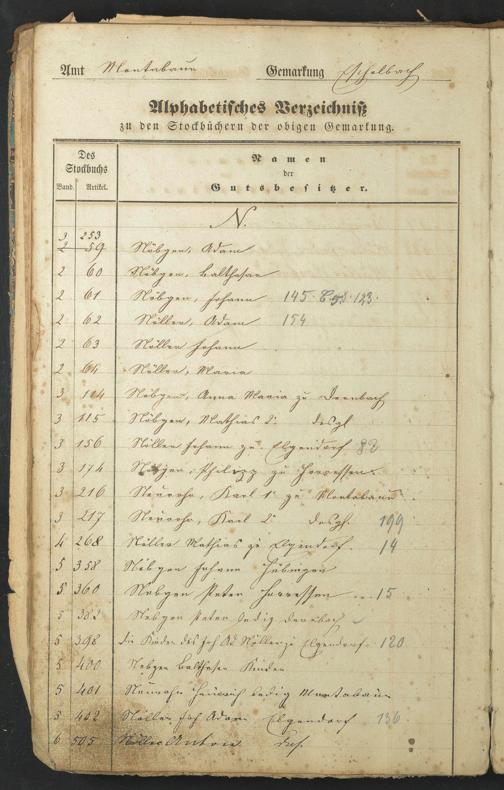 Amt Montabaur Gemarkung Eschelbach
Alphabetisches Verzeichniß
zu den Stockbüchern der obigen Gemarkung.
Des Stockbuchs
Band. Artikel.
Namen
der
Gutsbesitzer.
N.
3 253
2 59 Nöbgen, Adam
2 60 Nöbgen, Balthasar
2 61 Nöbgen, Johann 145 123
2 62 Nöller, Adam 154
2 63 Nöller Johann
2 64 Nöller, Maria
3 114 Nöbgen, Anna Maria zu Dernbach
3 115 Nöbgen, Mathias 2r desgl
3 156 Nöller Johann zu Elgendorf 82
3 174 Nöbgen, Philipp zu Horressen
3 216 Neuroth, Karl 1r zu Montabaur
3 217 Neuroth, Karl 2r desgl. 199
4 268 Nöller Mathias zu Elgendorf 14
5 358 Nöbgen Johann
5 360 Nöbgen Peter Horressen 15
5 Nebgen Peter ledig Dernbach
5 398 die Kinder des Joh Ad Nöller zu Elgendorf 120
5 400 Nebgen Balthasar Kinder
5 401 Neuroth Heinrich ledig Montabaur
5 402 Nöller Joh Adam Elgendorf 136
6 505 Nöller Anton